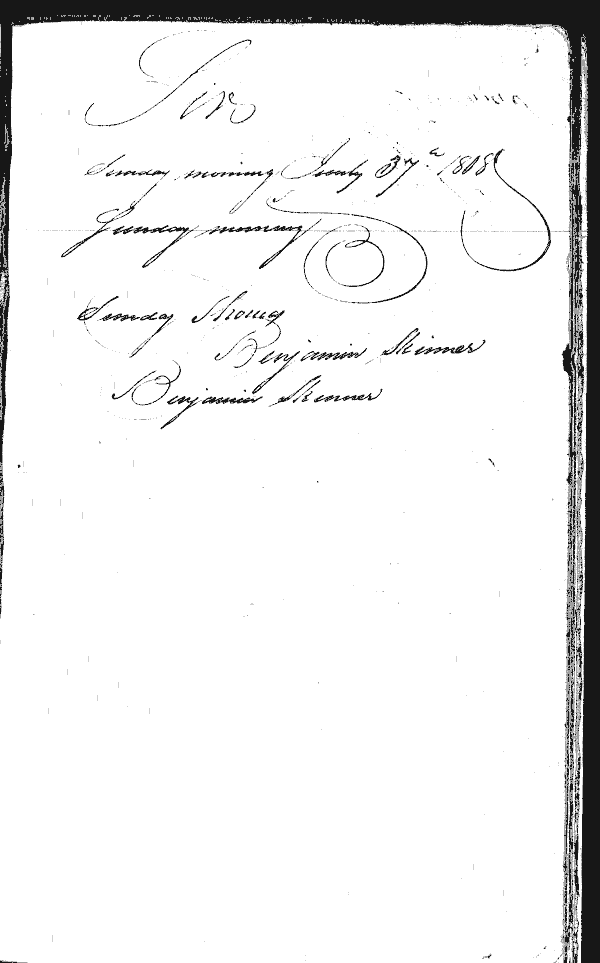 Sir
Sunday morning July 37th 1808
Sunday morning
Sunday
Benjamin Skinner
Benjamin Skinner